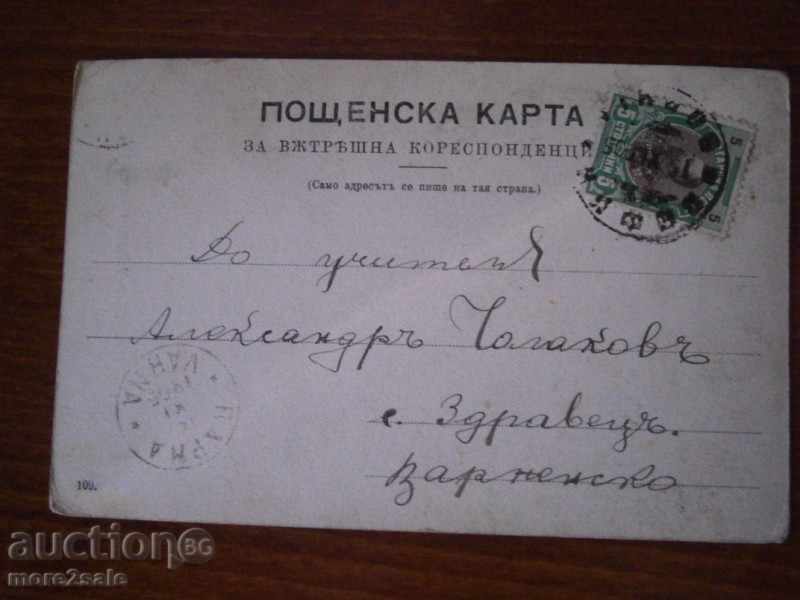 ПОЩЕНСКА КАРТА
ЗА ВѪТРѢШНА КОРЕСПОНДЕНЦИ
(Само адресътъ се пише на тая страна.)
5 5
5 5
До учителя
Александръ Чолаковъ
с. Здравецъ.
Варненско
ВАРНА
VARNA
109.
auctionBG
more2sale